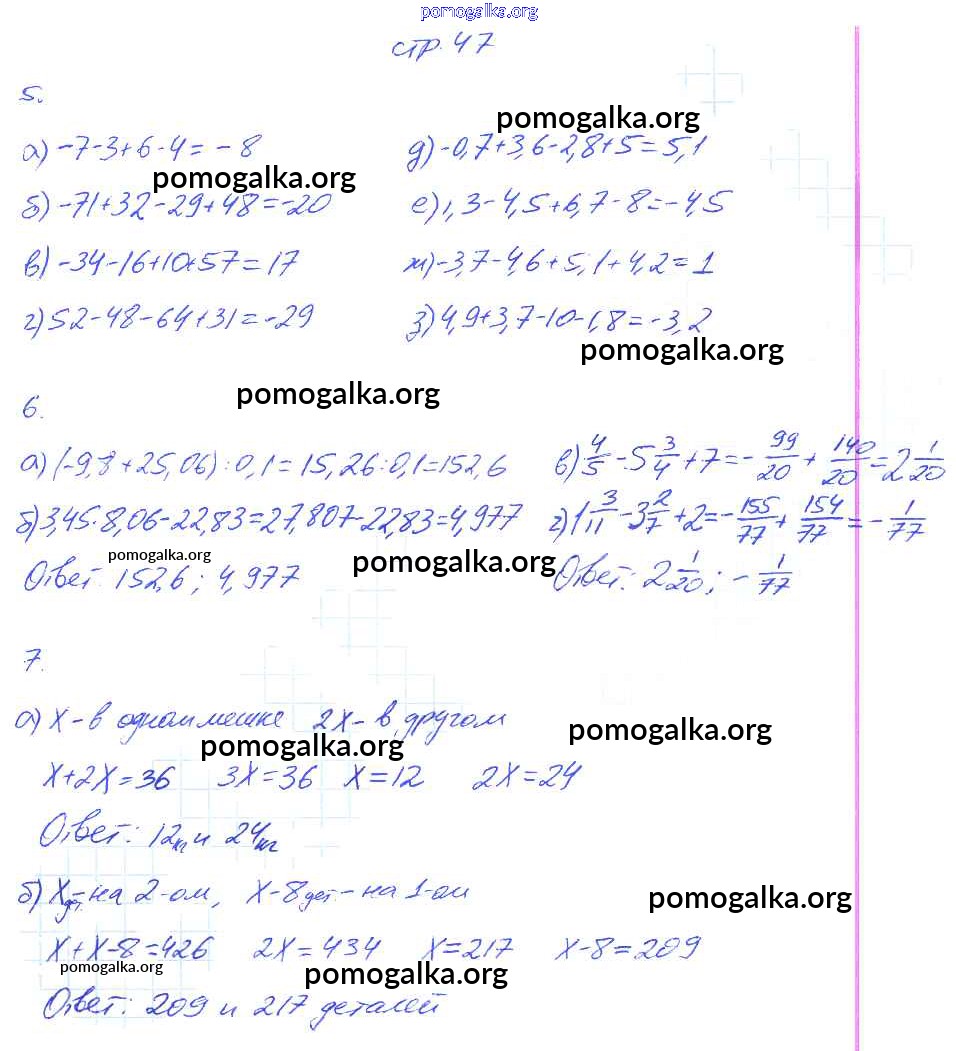 pomogalka.org
стр. 47
5.
pomogalka.org
а) -7-3+6-4 = -8
д) -0,7+3,6-2,8+5=5,1
pomogalka.org
б) -71+32-29+48=-20
е) 1,3-4,5+6,7-8=-4,5
в) -34-16+10+57=17
ж) -3,7-4,6+5,1+4,2=1
г) 52-48-64+31=-29
з) 4,9+3,7-10-1,8=-3,2
pomogalka.org
pomogalka.org
6.
а) (-9,8+25,06):0,1=15,26:0,1=152,6
в) 4/5 - 5 3/4 + 7 = - 99/20 + 140/20 = 2 1/20
б) 3,45·8,06-22,83=27,807-22,83=4,977
г) 1 3/11 - 3 2/7 + 2 = - 155/77 + 154/77 = - 1/77
pomogalka.org
pomogalka.org
Ответ: 152,6; 4,977
Ответ: 2 1/20; - 1/77
7.
а) х - в одном мешке 2х - в другом
pomogalka.org
pomogalka.org
х+2х=36 3х=36 х=12 2х=24
Ответ: 12кг и 24кг
б) х дет. - на 2-ом, х-8 дет - на 1-ом
pomogalka.org
х+х-8=426 2х=434 х=217 х-8=209
pomogalka.org
pomogalka.org
Ответ: 209 и 217 деталей